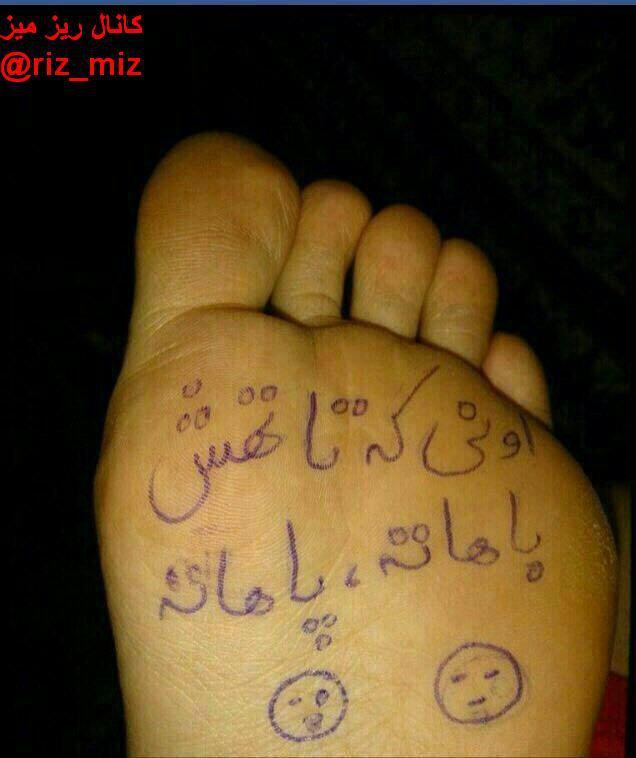 کانال ریز میز
@riz_miz
اونی که تا تهش
باهاته ، پاهاته